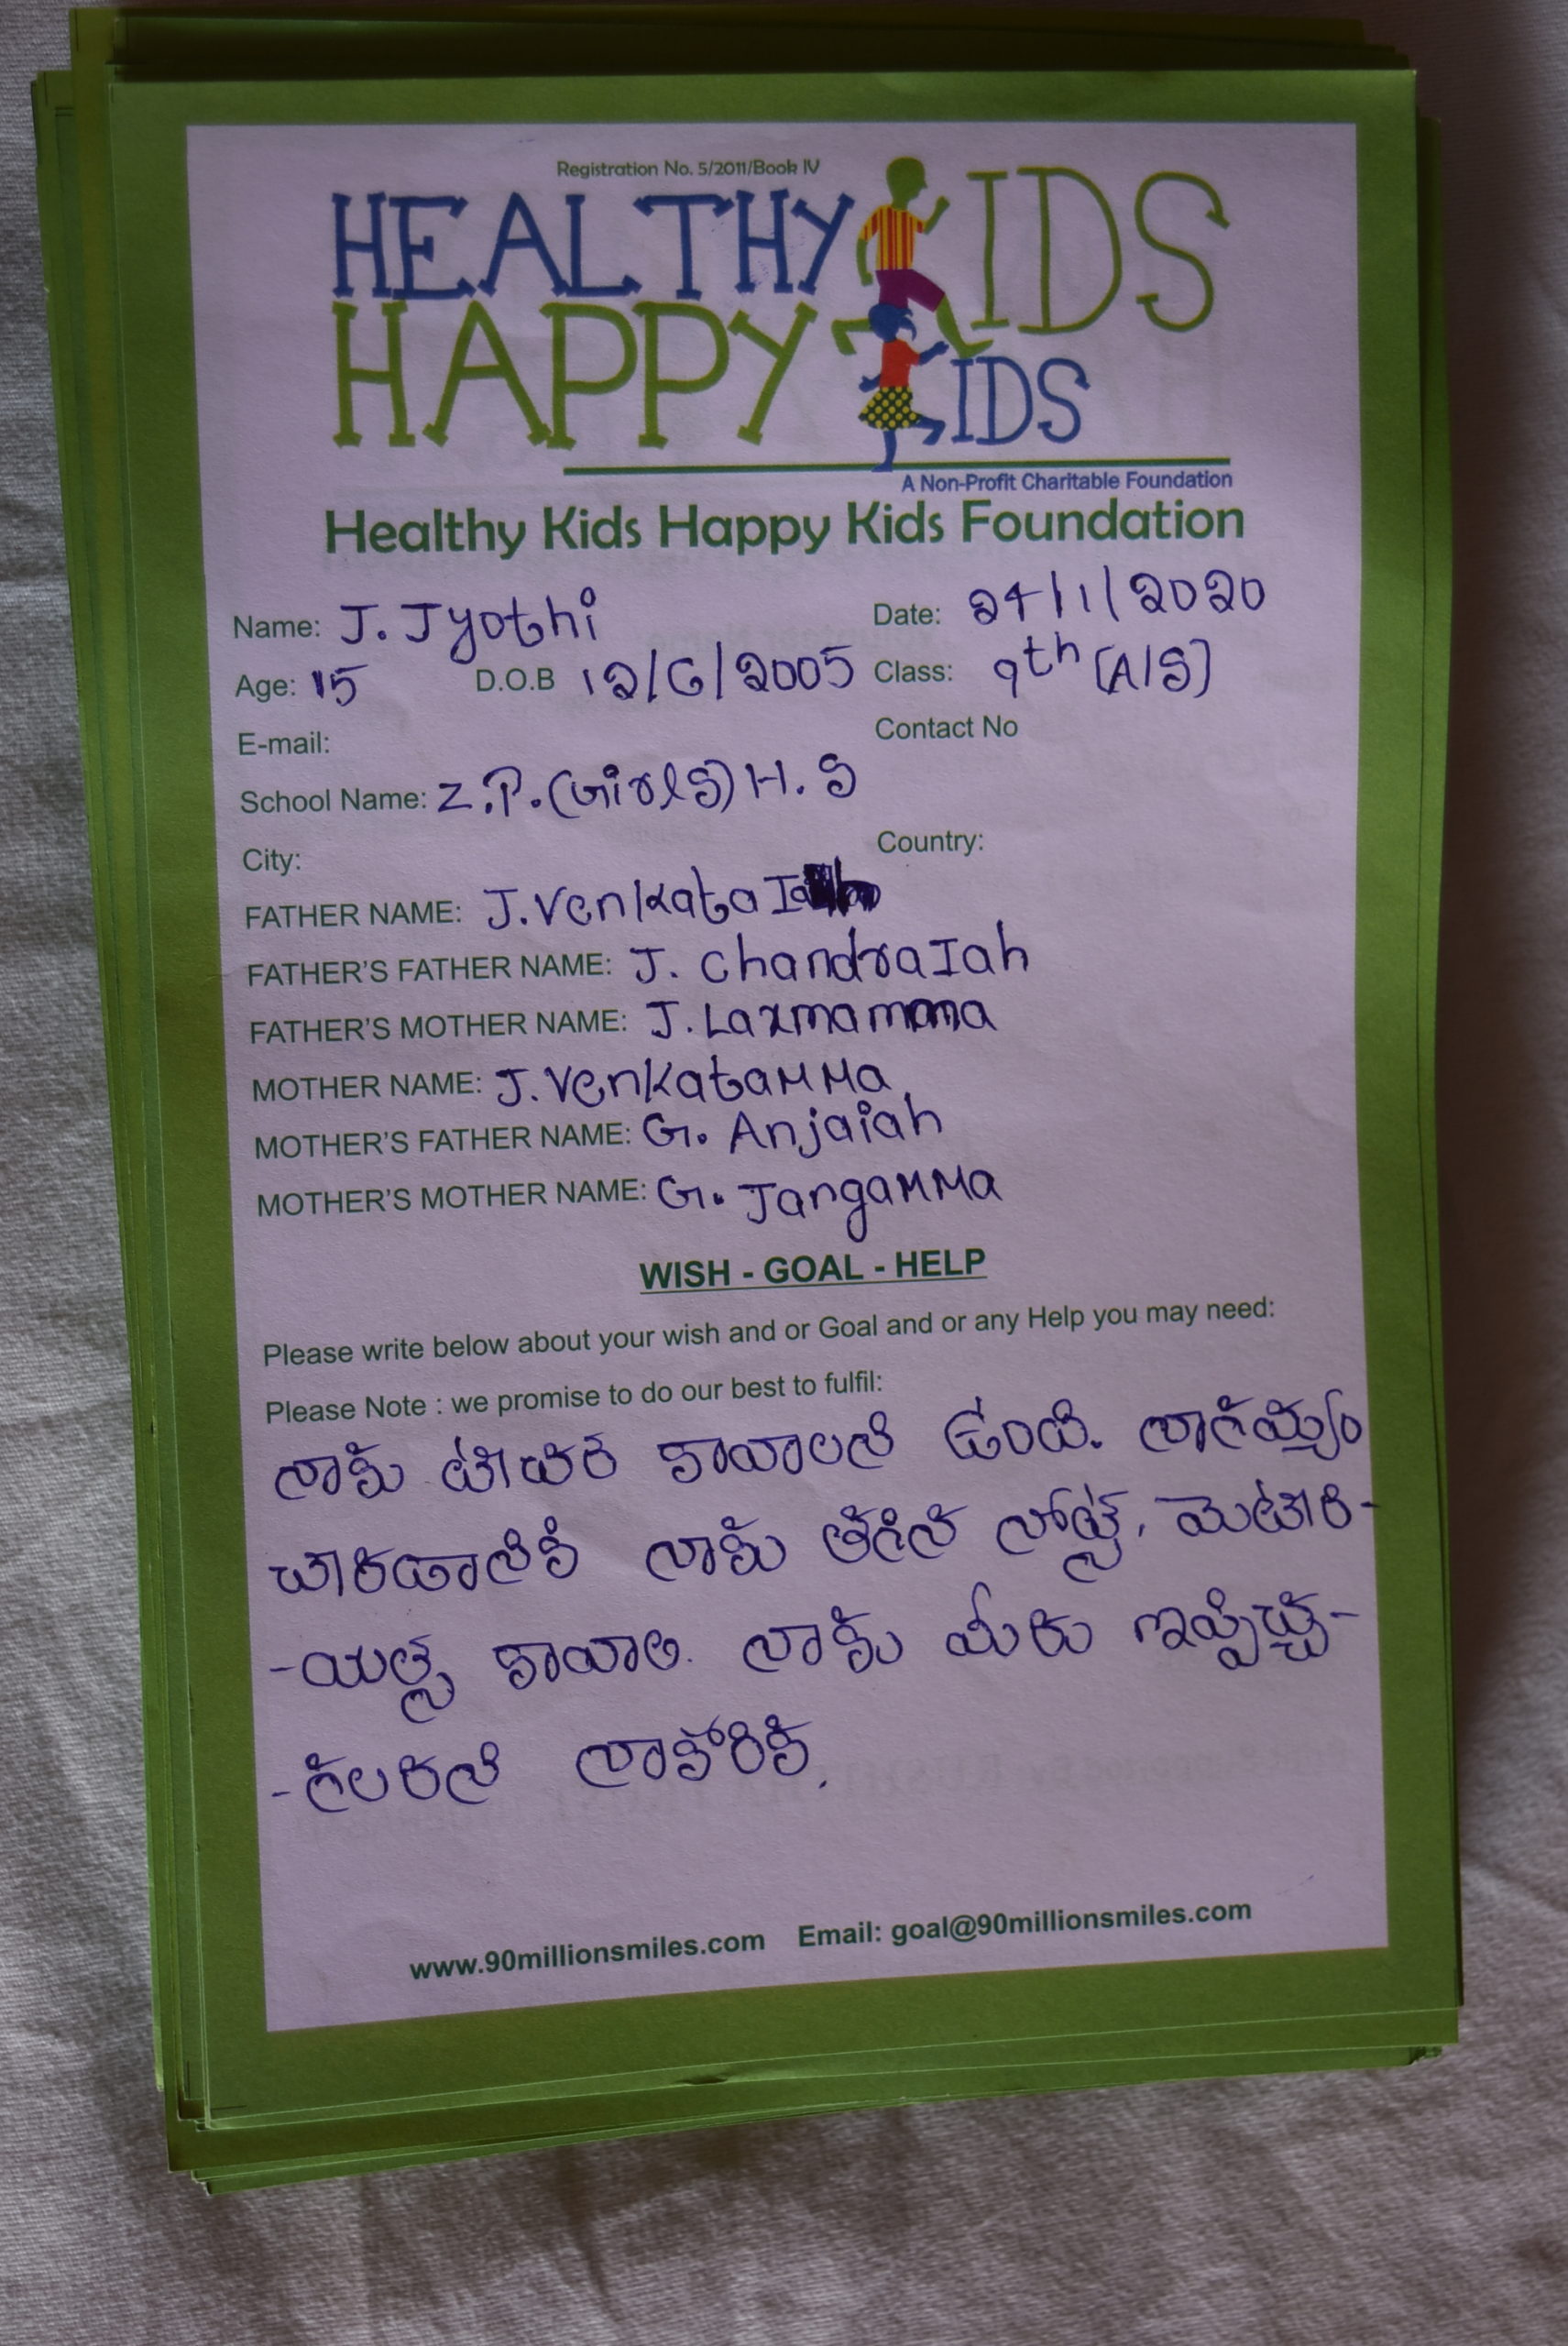 Registration No. 5/2011/Book IV
HEALTHY KIDS
HAPPY KIDS
A Non-Profit Charitable Foundation
Healthy Kids Happy Kids Foundation
Name: J. Jyothi Date: 24/1/2020
Age: 15 D.O.B 12/6/2005 Class: 9th [A/S]
E-mail: Contact No
School Name: Z.P. (Girls) H.S
City: Country:
FATHER NAME: J. Venkata
FATHER'S FATHER NAME: J. ChandraIah
FATHER'S MOTHER NAME: J. Laxmamma
MOTHER NAME: J. VenkataMMa
MOTHER'S FATHER NAME: G. Anjaiah
MOTHER'S MOTHER NAME: G. JangaMMa
WISH - GOAL - HELP
Please write below about your wish and or Goal and or any Help you may need:
Please Note : we promise to do our best to fulfil:
నాకు టీచర్ కావాలని ఉంది. నాగమ్యం
చేరడానికి నాకు తగిన నోట్స్, మెటీరి-
-యల్స్ కావాలి. నాకు మీరు ఇప్పిచ్చ-
-గలరని నాకోరిక.
www.90millionsmiles.com Email: goal@90millionsmiles.com